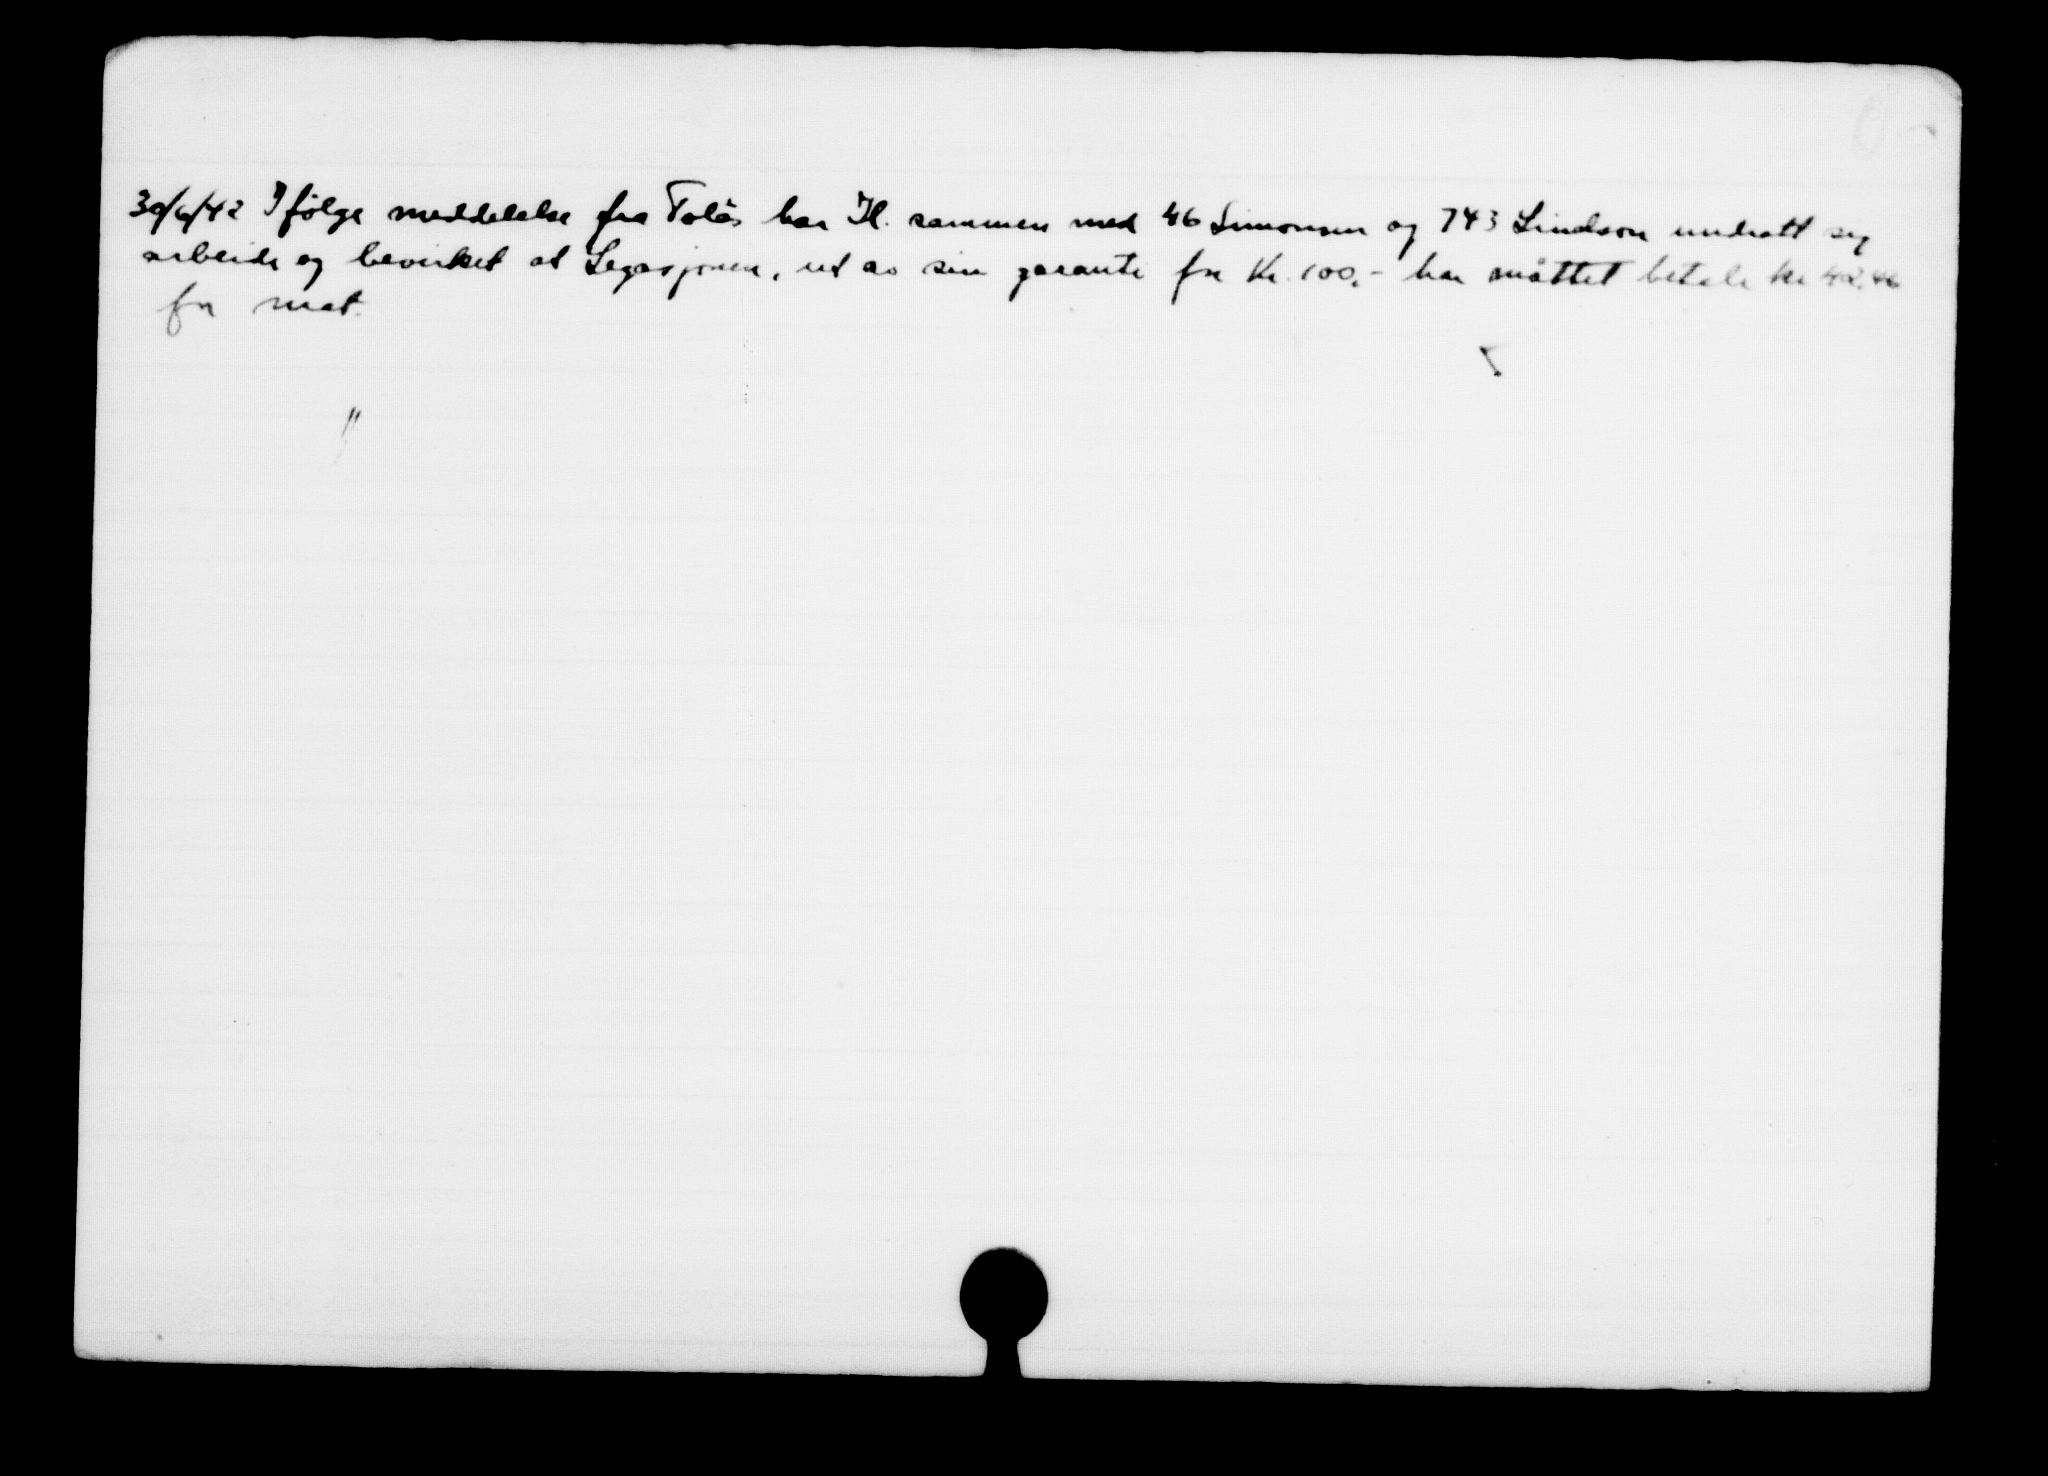 30/6/42 Ifølge meddelelse fra Tolås har H. sammen med 46 Simonsen og 743 Lindson undratt seg
arbeide og bevirket at Legasjonen, ut av sin garanti for Kr. 100,- har måttet betale kr 42,46
for mat.